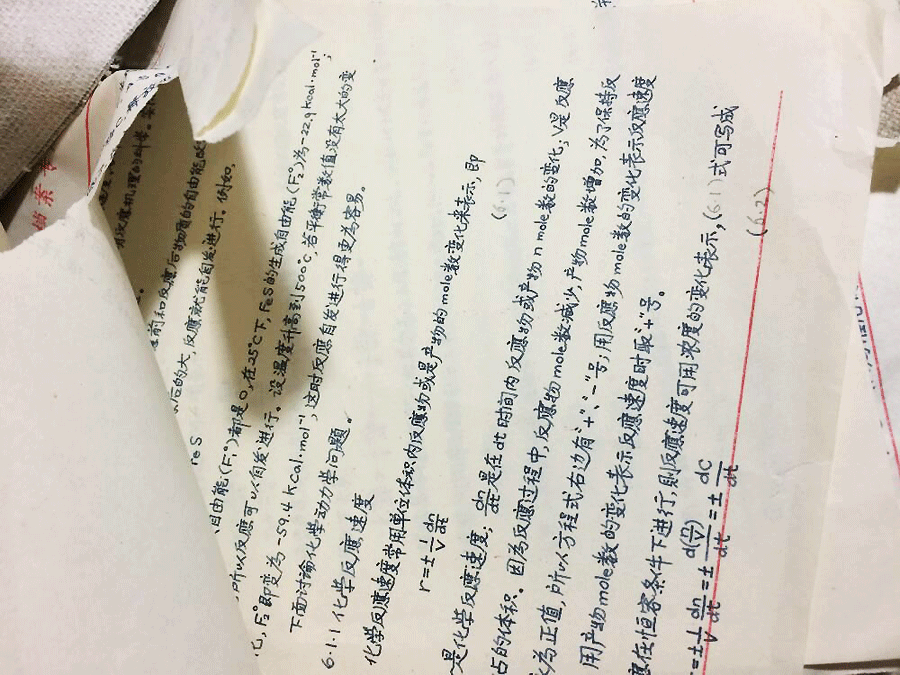 前和反应后物质的自由能
后的大,反应就能自发进行。例如,
Fe S
自由能(F₁°)都是0,在25℃下,FeS的生成自由能(F₂°)为-22.9 kcal·mol⁻¹,
所以反应可以自发进行。设温度升高到500℃,若平衡常数值没有太大的变
化,F₂°即变为-59.4 kcal.mol⁻¹,这时反应自发进行得更为容易。
下面讨论化学动力学问题。
6.1.1 化学反应速度
化学反应速度常用单位体积内反应物或是产物的mole数变化来表示,即
r=±1/V dn/dt (6.1)
是化学反应速度;dn/dt是在dt时间内反应物或产物n mole数的变化;V是反应
占的体积。因为反应过程中,反应物mole数减少,产物mole数增加,为了保持反
为正值,所以方程式右边有“+”、“-”号;用反应物mole数的变化表示反应速度
用产物mole数的变化表示反应速度时取“+”号。
应在恒容条件下进行,则反应速度可用浓度的变化表示,(6.1)式可写成
=±1/V dn/dt=±d(n/V)/dt=±dC/dt (6.2)